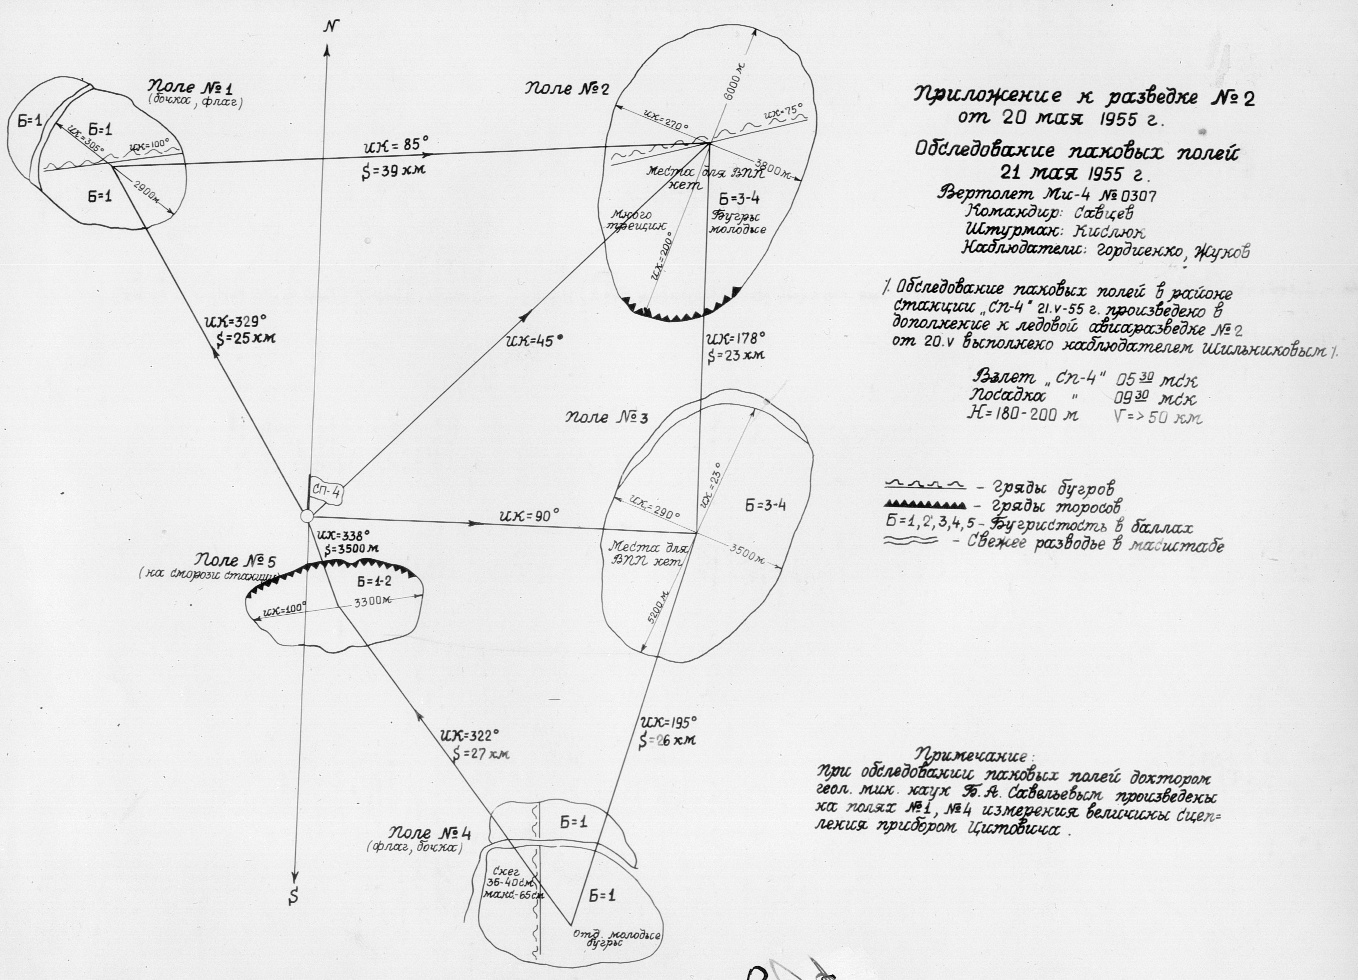 N
Поле №1
(бочка, флаг)
Б=1
Б=1
ИК=305°
ИК=100°
Б=1
2900м
ИК=85°
S=39 км
Поле №2
6000 м
ИК=270°
ИК=75°
3800м
Места для ВПП
нет
Б=3-4
Бугры
молодые
Много
трещин
ИК=200°
ИК=329°
S=25 км
ИК=45°
ИК=178°
S=23 км
Поле №3
ИК=23°
ИК=290°
Б=3-4
Места для
ВПП нет
3500м
5200м
СП-4
ИК=90°
ИК=338°
S=3500м
Поле №5
(на сморози станции)
Б=1-2
ИК=100°
3300м
ИК=322°
S=27 км
ИК=195°
S=26 км
Поле №4
(флаг, бочка)
Б=1
Снег
35-40см
макс-65см
Б=1
Отд. молодые
бугры
S
Приложение к разведке №2
от 20 мая 1955 г.
Обследование паковых полей
21 мая 1955 г.
Вертолет Ми-4 №0307
Командир: Савцев
Штурман: Кислюк
Наблюдатели: Гордиенко, Жуков
/. Обследование паковых полей в районе
станции „СП-4" 21.V-55 г. произведено в
дополнение к ледовой авиаразведке №2
от 20.V выполнено наблюдателем Шильниковым /.
Взлет „СП-4" 05 30 мск
Посадка " 09 30 мск
Н=180-200 м V=>50 км
- Гряды бугров
- Гряды торосов
Б=1,2,3,4,5 - Бугристость в баллах
- Свежее разводье в масштабе
Примечание:
При обследовании паковых полей доктором
геол. мин. наук Б.А. Савельевым произведены
на полях №1, №4 измерения величины сцеп=
ления прибором Цитовича.